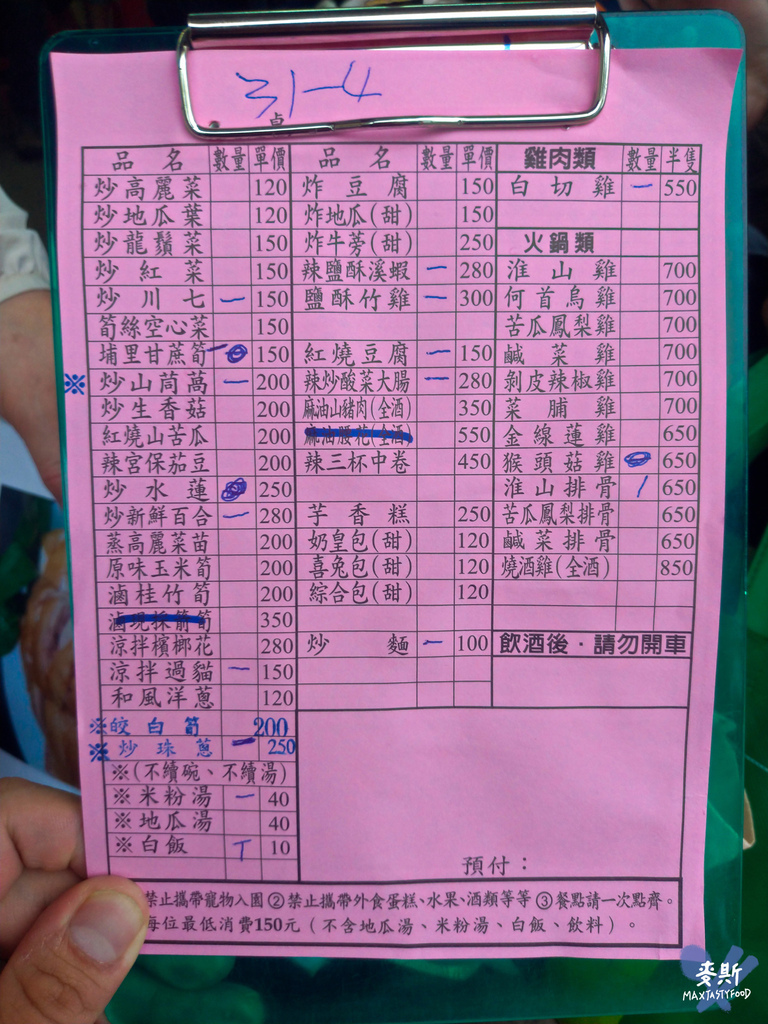 31-4
桌
品名 數量 單價
炒高麗菜 120
炒地瓜葉 120
炒龍鬚菜 150
炒紅菜 150
炒川七 一 150
筍絲空心菜 150
埔里甘蔗筍 一 150
※炒山茼萵 一 200
炒生香菇 200
紅燒山苦瓜 200
辣宮保茄豆 200
炒水蓮 250
炒新鮮百合 一 280
蒸高麗菜苗 200
原味玉米筍 200
滷桂竹筍 200
滷現採箭筍 350
涼拌檳榔花 280
涼拌過貓 一 150
和風洋蔥 120
※皎白筍 200
※炒珠蔥 一 250
※(不續碗、不續湯)
※米粉湯 一 40
※地瓜湯 40
※白飯 T 10
品名 數量 單價
炸豆腐 150
炸地瓜(甜) 150
炸牛蒡(甜) 250
辣鹽酥溪蝦 一 280
鹽酥竹雞 一 300
紅燒豆腐 一 150
辣炒酸菜大腸 一 280
麻油山豬肉(全酒) 350
麻油腰花(全酒) 550
辣三杯中卷 450
芋香糕 250
奶皇包(甜) 120
喜兔包(甜) 120
綜合包(甜) 120
炒麵 一 100
雞肉類 數量 半隻
白切雞 一 550
火鍋類
淮山雞 700
何首烏雞 700
苦瓜鳳梨雞 700
鹹菜雞 700
剝皮辣椒雞 700
菜脯雞 700
金線蓮雞 650
猴頭菇雞 650
淮山排骨 / 650
苦瓜鳳梨排骨 650
鹹菜排骨 650
燒酒雞(全酒) 850
飲酒後‧請勿開車
預付：
禁止攜帶寵物入園②禁止攜帶外食蛋糕、水果、酒類等等③餐點請一次點齊。
每位最低消費150元（不含地瓜湯、米粉湯、白飯、飲料）。
麥斯
MAXTASTYFOOD